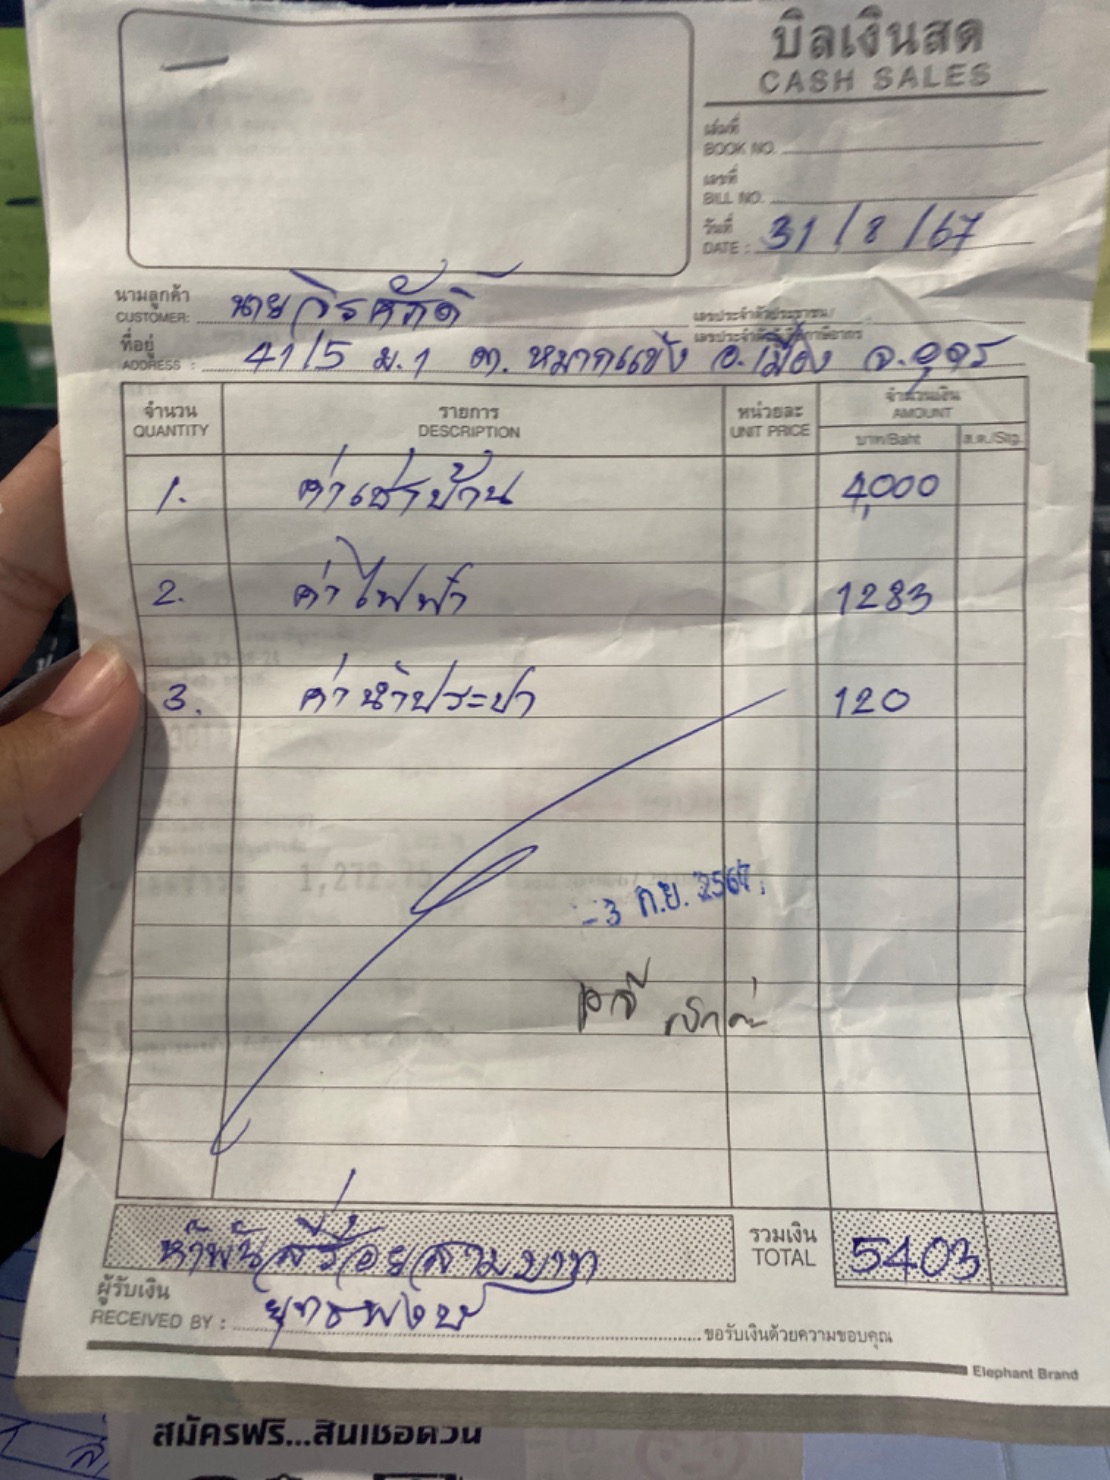 บิลเงินสด
CASH SALES
เล่มที่
BOOK NO.
เลขที่
BILL NO.
วันที่
DATE : 31/8/67
นามลูกค้า
CUSTOMER: นายวิรศักดิ์
เลขประจำตัวประชาชน/
ที่อยู่
ADDRESS : 41/5 ม.1 ต.หมากแข้ง อ.เมือง จ.อุดร
จำนวน รายการ หน่วยละ จำนวนเงิน
QUANTITY DESCRIPTION UNIT PRICE AMOUNT
บาท/Baht ส.ต./Stg.
1. ค่าเช่าบ้าน 4,000
2. ค่าไฟฟ้า 1283
3. ค่าน้ำประปา 120
1,272.75
-3 ก.ย. 2567
ห้าพันสี่ร้อยสามบาท รวมเงิน TOTAL 5403
ผู้รับเงิน
RECEIVED BY : ยุทธพงษ์ ขอรับเงินด้วยความขอบคุณ
Elephant Brand
สมัครฟรี...สินเชื่อด่วน